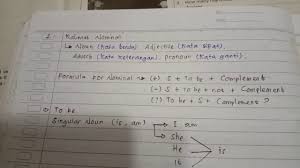 1. Kalimat Nominal
↳ Noun (Kata benda) Adjective (Kata sifat)
Adverb (Kata keterangan) pronoun (Kata ganti).
Formula For Nominal → (+) S + To be + Complement
(-) S + To be + not + Complement
(?) To be + S + Complement ?
To be
Singular Noun (is, am) → I am
She
He is
It